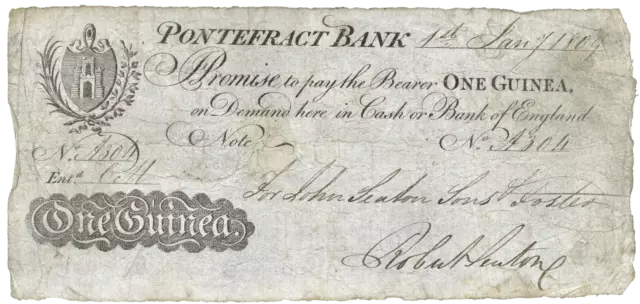 PONTEFRACT BANK 1st Jany 1809
I Promise to pay the Bearer ONE GUINEA,
on Demand here in Cash or Bank of England
Note No. A304
No. A304
Entd.
For John Seaton Sons & Foster
One Guinea.
Robert Seaton